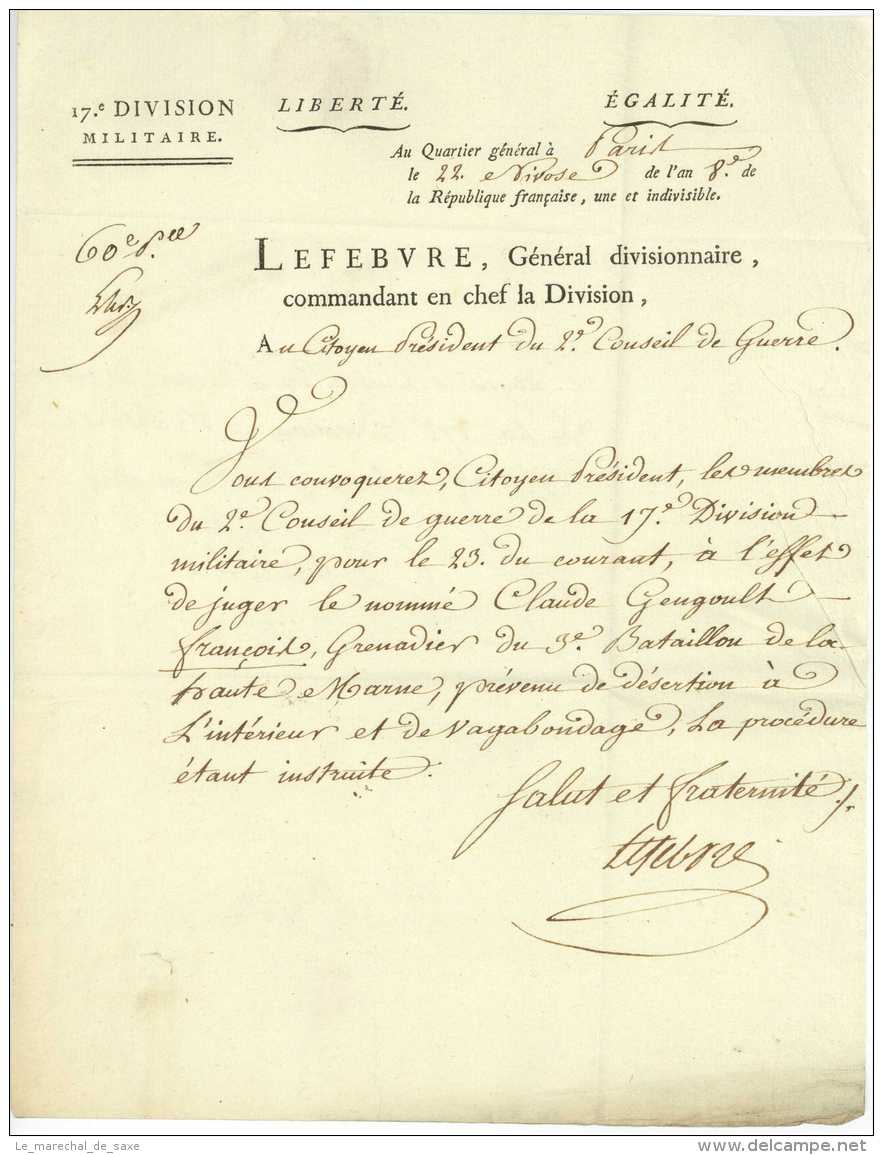 17.e DIVISION
MILITAIRE.
LIBERTÉ.
ÉGALITÉ.
Au Quartier général à Paris
le 22. Nivose de l'an 8.e de
la République française, une et indivisible.
60e
LEFEBVRE, Général divisionnaire,
commandant en chef la Division,
Au Citoyen Président du 2.e Conseil de Guerre.
Vous convoquerez, Citoyen Président, les membres
du 2.e Conseil de guerre de la 17.e Division
militaire, pour le 23. du courant, à l'effet
de juger le nommé Claude Gengoult
françois, Grenadier du 3.e Bataillon de la
haute Marne, prévenu de désertion à
l'intérieur et de vagabondage, La procédure
étant instruite.
Salut et fraternité
Lefebvre
Le_marechal_de_saxe
www.delcampe.net